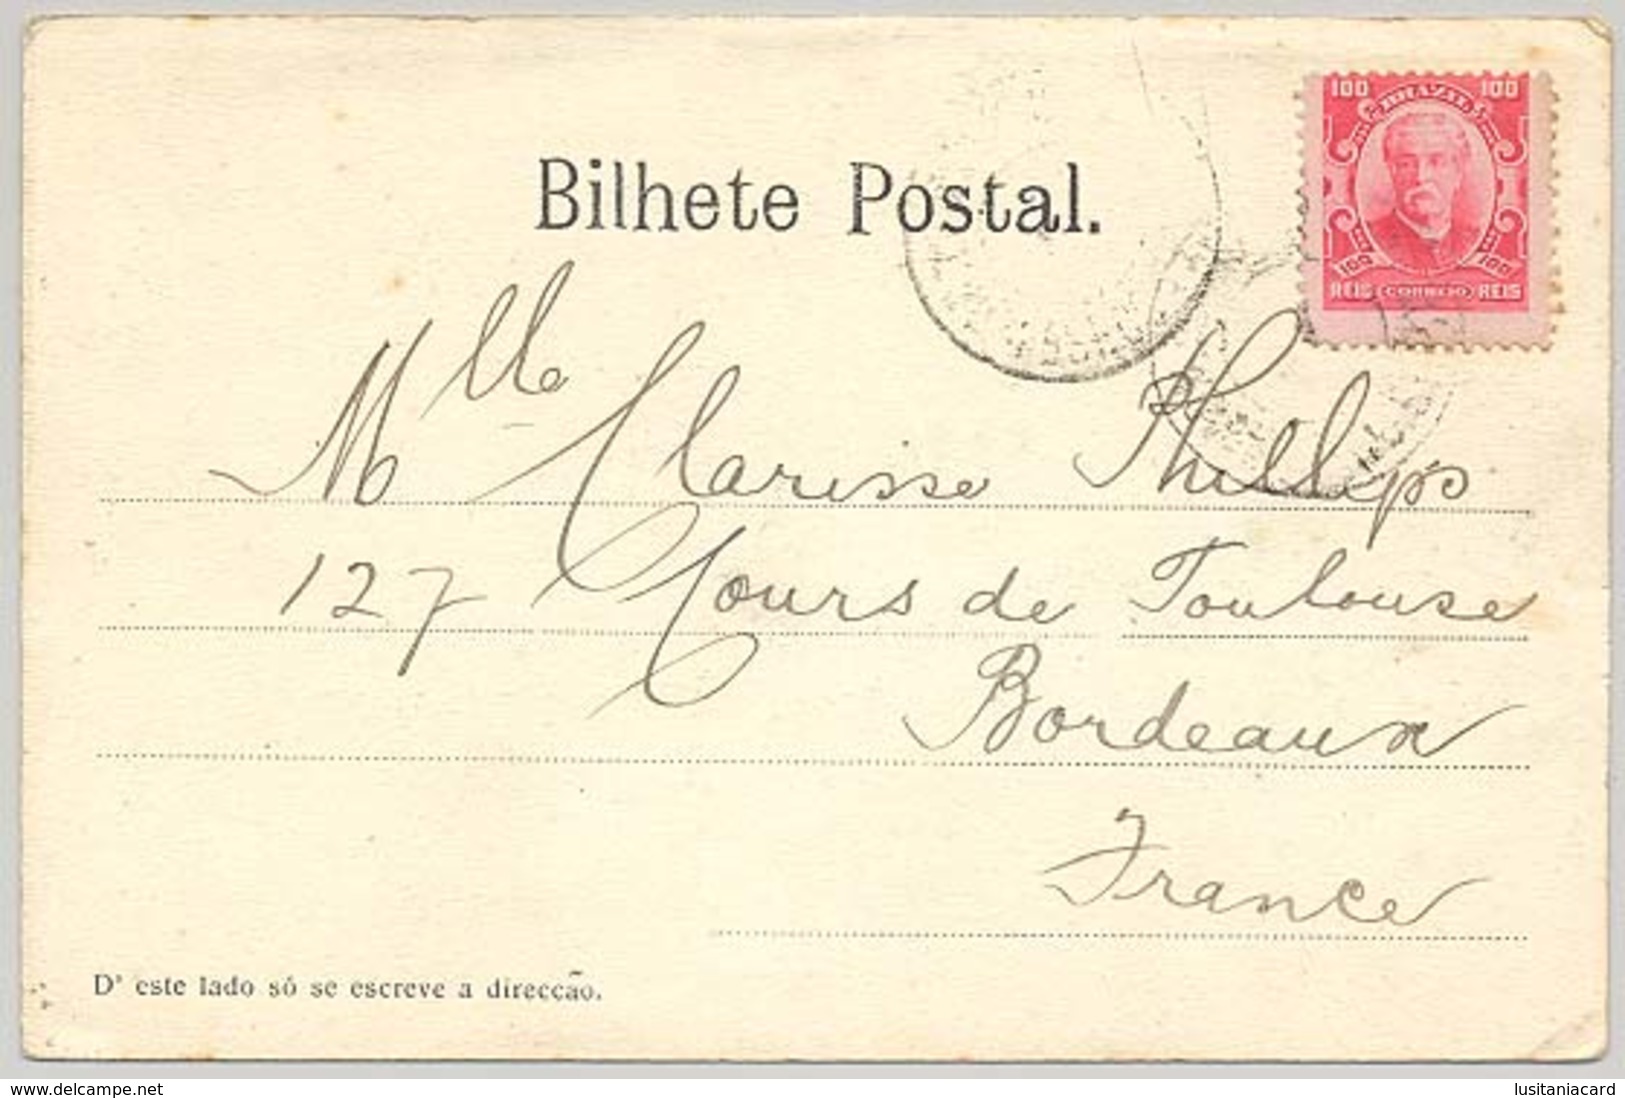 Bilhete Postal.
100 100
BRAZIL
100 100
REIS CORREIO REIS
Mlle Clarisse Phillips
127 Cours de Toulouse
Bordeaux
France
D'este lado só se escreve a direcção.
www.delcampe.net
lusitaniacard